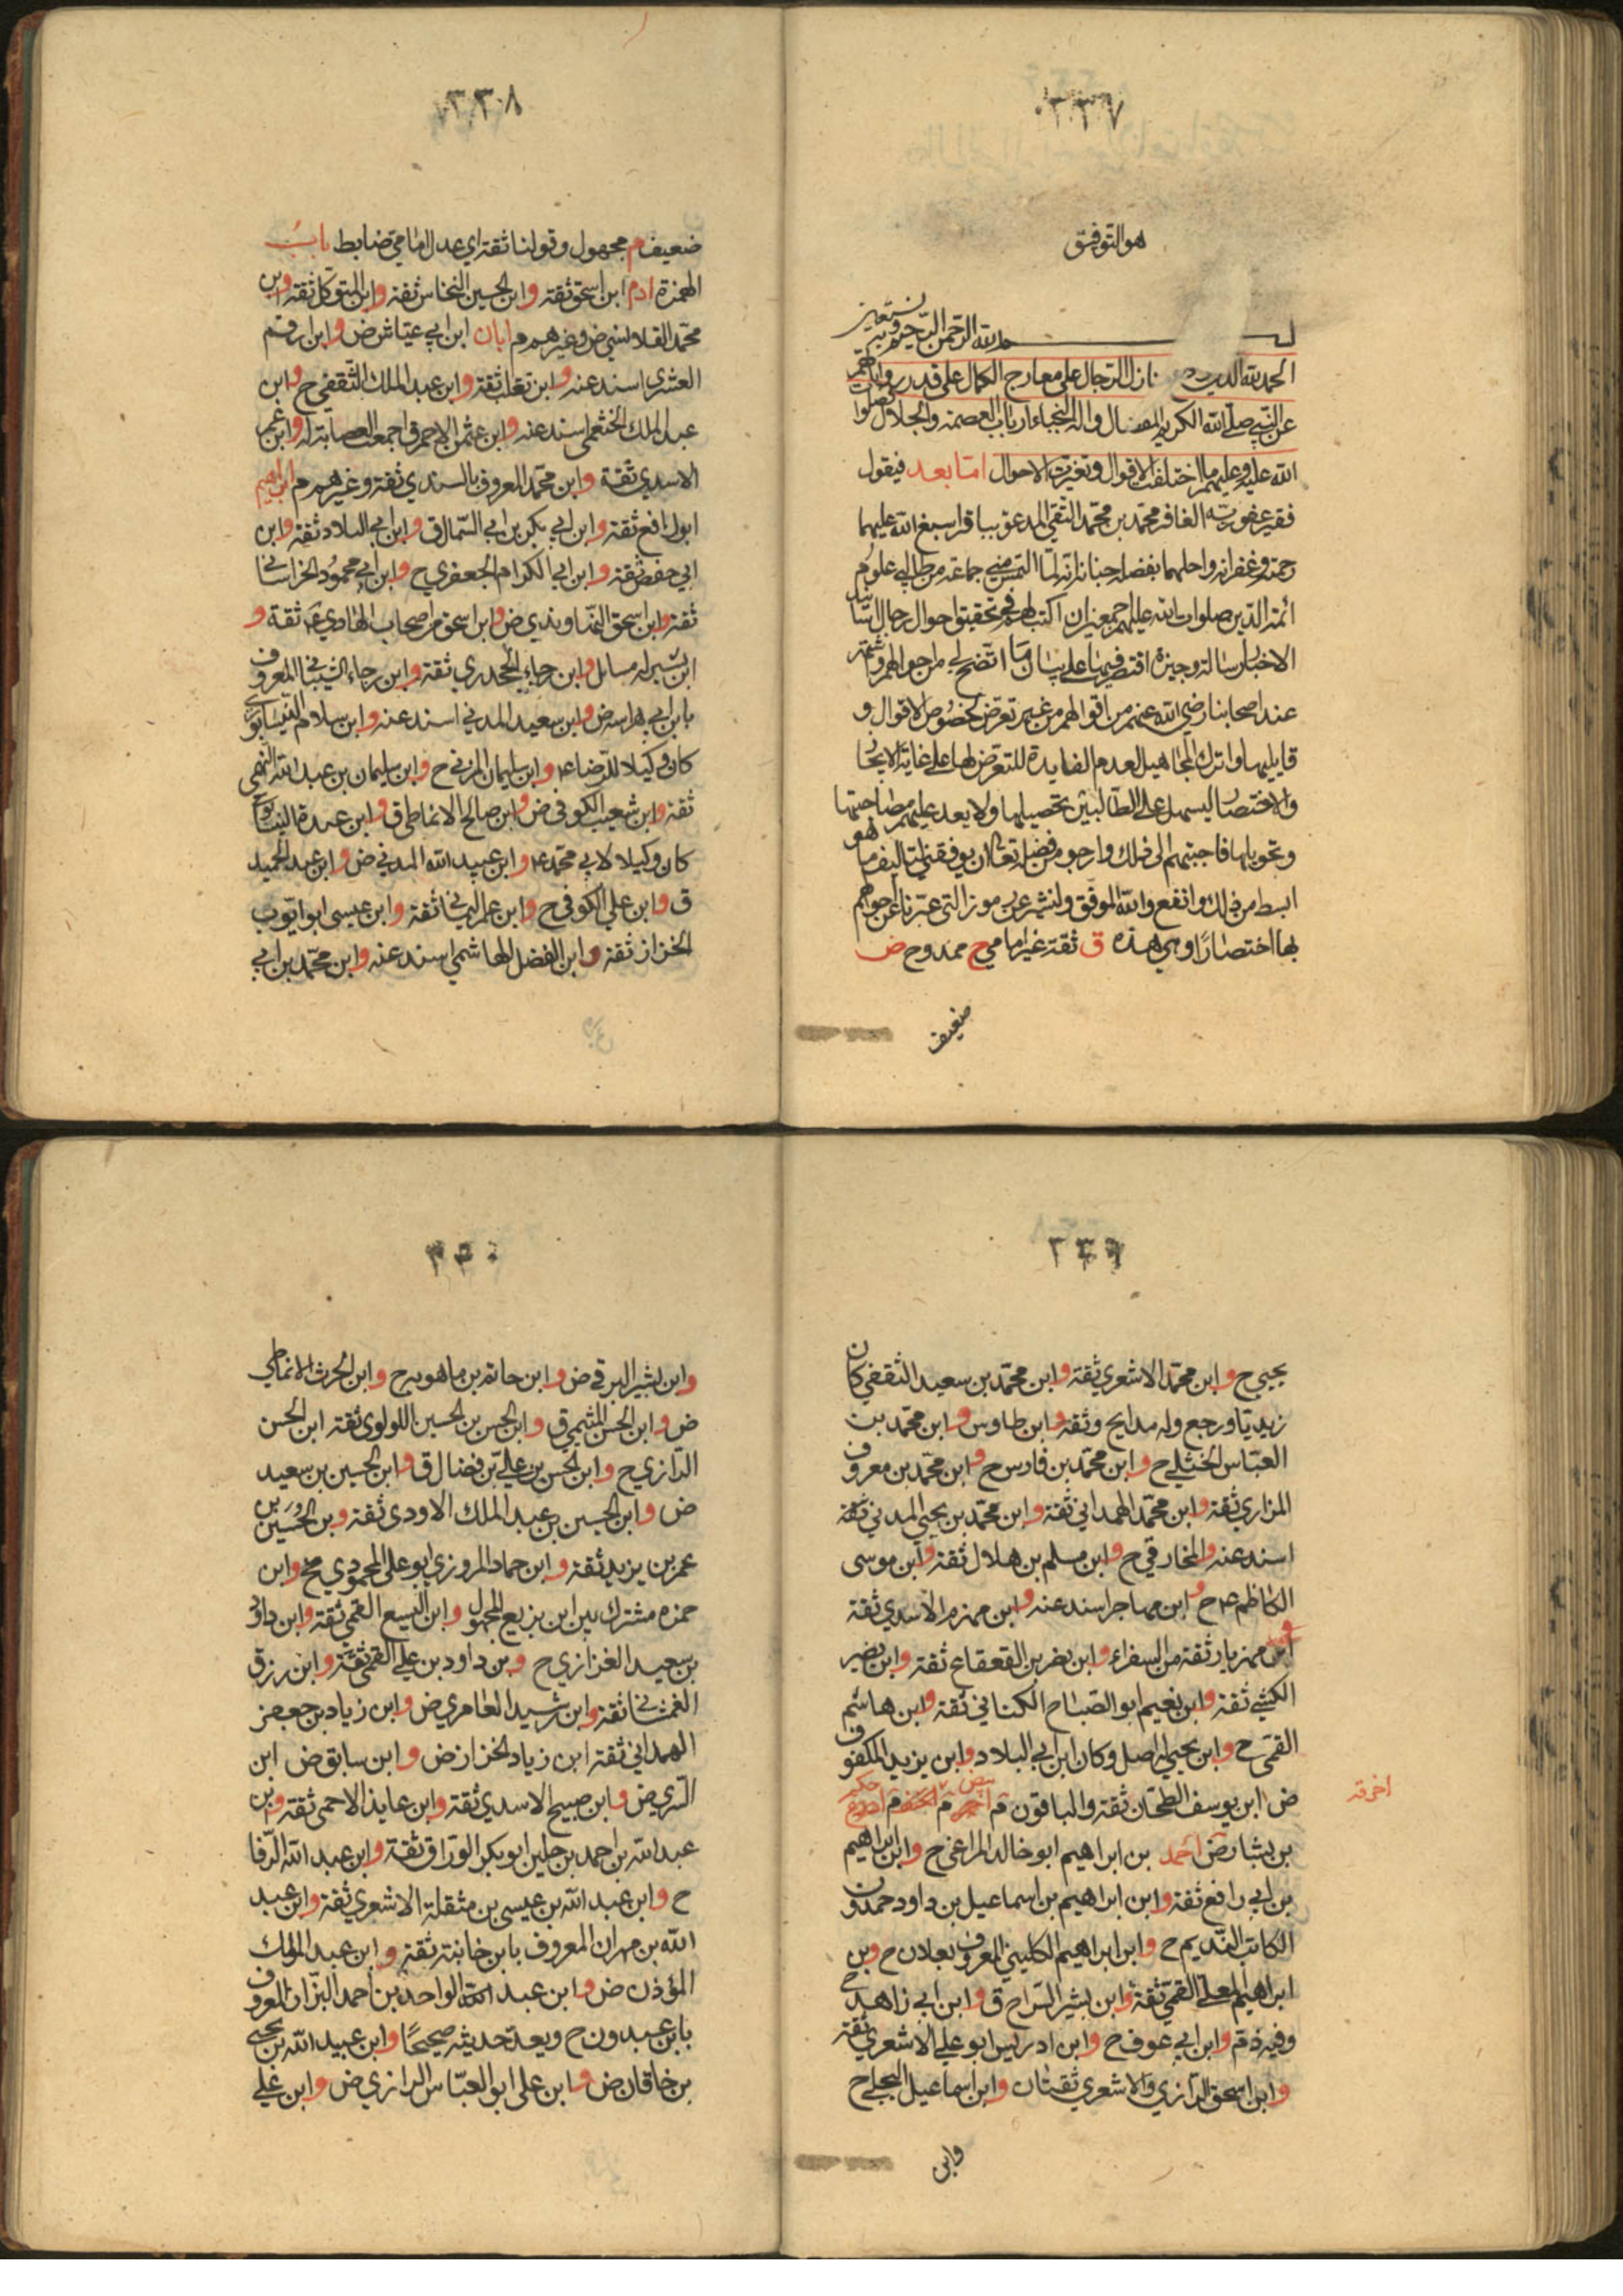 ٣٣٧
هو التوفيق
بسم الله الرحمن الرحيم وبه نستعين
الحمد لله الذي نازل الرجال على معارج الكمال على قدر رواياتهم
عن النبي صلى الله الكريم المفضال واله النجباء ارباب العصمة والجلال صلوات
الله عليه وعليهم ما اختلفت الاقوال وتغيرت الاحوال اما بعد فيقول
فقير عفو ربه الغافر محمد بن محمد التقي المدعو بباقر اسبغ الله عليهما
رحمته وغفرانه واحلهما بفضله جنانه انه لما التمس مني جماعة من طالبي علوم
ائمة الدين صلوات الله عليهم اجمعين ان اكتب لهم في تحقيق احوال رجال اسانيد
الاخبار رسالة وجيزة اقتصر فيها على بيان ما اتضح لي من احوالهم واشتهر
عند اصحابنا رضي الله عنهم من اقوالهم من غير تعرض لخصوص الاقوال و
قايليها واترك المجاهيل لعدم الفايدة للتعرض لها على غاية الايجاز
والاختصار ليسهل على الطالبين تحصيلها ولا يعد عليهم مصاحبتها
وتحويلها فاجبتهم الى ذلك وارجو من فضله تعالى ان يوفقني لتاليف ما هو
ابسط من ذلك وانفع والله الموفق ولنشر عن رموز التي عبرنا عن احوالهم
بها اختصارا وهي هذه ق ثقة غير امامي ح ممدوح ض
ضعيف
٣٣٨
ضعيف م مجهول وقولنا ثقة اي عدل امامي ضابط باب
الهمزة ادم ابن اسحق ثقة وابن الحسين النخاس ثقة وابن المتوكل ثقة وابن
محمد القلانسي ض وغيرهم م ابان ابن ابي عياش ض وابن ارقم
العنزي اسند عنه وابن تغلب ثقة وابن عبد الملك الثقفي ح وابن
عبد الملك الخثعمي اسند عنه وابن عثمن الاحمر ق اجمعت العصابة له وابن عمر
الاسدي ثقة وابن محمد المعروف بالسندي ثقة وغيرهم م ابراهيم
ابو رافع ثقة وابن ابي بكر بن ابي السمال ق وابن ابي البلاد ثقة وابن
ابي حفص ثقة وابن ابي الكرام الجعفري ح وابن ابي محمود الخراساني
ثقة وابن اسحق النهاوندي ض وابن اسحق من اصحاب الهادي ع ثقة و
ابن بشير له مسائل وابن رجاء الجحدري ثقة وابن رجاء الشيباني المعروف
بابن ابي هراسة ض وابن سعيد المدني اسند عنه وابن سلام النيسابوري
كان وكيلا للرضا ع وابن سليمان المزني ح وابن سليمان بن عبد الله النهمي
ثقة وابن شعيب الكوفي ض وابن صالح الانماطي ق وابن عبدة النيسابوري
كان وكيلا لابي محمد ع وابن عبيد الله المدني ض وابن عبد الحميد
ق وابن علي الكوفي ح وابن عمر اليماني ثقة وابن عيسى ابو ايوب
الخزاز ثقة وابن الفضل الهاشمي اسند عنه وابن محمد بن ابي
٣٣٩
يحيى ح وابن محمد الاشعري ثقة وابن محمد بن سعيد الثقفي كان
زيديا ورجع وله مدايح وثقه ابن طاوس وابن محمد بن
العباس الختلي ح وابن محمد بن فارس ح وابن محمد بن معروف
المزاري ثقة وابن محمد الهمداني ثقة وابن محمد بن يحيى المدني ثقة
اسند عنه والمخارقي ح وابن مسلم بن هلال ثقة وابن موسى
الكاظم ع ح وابن مهاجر اسند عنه وابن مهزم الاسدي ثقة
وابن مهزيار ثقة من السفراء وابن نصر بن القعقاع ثقة وابن نصير
الكشي ثقة وابن نعيم ابو الصباح الكناني ثقة وابن هاشم
القمي ح وابن يحيى له اصل وكان ابن ابي البلاد وابن يزيد المكفوف
ض ابن يوسف الطحان ثقة والباقون م
بن بشار ض احمد بن ابراهيم ابو خالد المراغي ح وابن ابراهيم
بن ابي رافع ثقة وابن ابراهيم بن اسماعيل بن داود حمدون
الكاتب النديم ح وابن ابراهيم الكليني المعروف بعلان ح وابن
ابراهيم المعلى القمي ثقة وابن بشير السراج ق وابن ابي زاهر ح
وفيه ذم وابن ابي عوف ح وابن ادريس ابو علي الاشعري ثقة
وابن اسحق الرازي والاشعري ثقتان وابن اسماعيل البجلي ح
وابن
٣٤٠
وابن بشير البرقي ض وابن حاتم بن ماهويه ح وابن الحرث الانماطي
ض وابن الحسن الميثمي ق وابن الحسن بن الحسين اللولوي ثقة ابن الحسن
الرازي ح وابن الحسن بن علي بن فضال ق وابن الحسين بن سعيد
ض وابن الحسين بن عبد الملك الاودي ثقة وابن الحسين بن
عمر بن يزيد ثقة وابن حماد المروزي ابو علي المحمودي مخ وابن
حمزه مشترك بين ابن بزيع المجهول وابن اليسع القمي ثقة وابن داود
بن سعيد الفزازي ح وبن داود بن علي القمي ثقة وابن رزق
الغمشاني ثقة وابن رشيد العامري ض وابن زياد بن جعفر
الهمداني ثقة ابن زياد الخزاز ض وابن سابق ض ابن
السري ض وابن صبيح الاسدي ثقة وابن عايذ الاحمسي ثقة وابن
عبد الله بن احمد بن جلين ابو بكر الوراق ثقة وابن عبد الله الرفا
ح وابن عبد الله بن عيسى بن مثقلة الاشعري ثقة وابن عبد
الله بن مهران المعروف بابن خانبة ثقة وابن عبد الملك
المؤذن ض وابن عبد الواحد بن احمد البزاز المعروف
بابن عبدون ح ويعد حديثه صحيحا وابن عبيد الله بن يحيى
بن خاقان ض وابن علي ابو العباس الرازي ض وابن علي